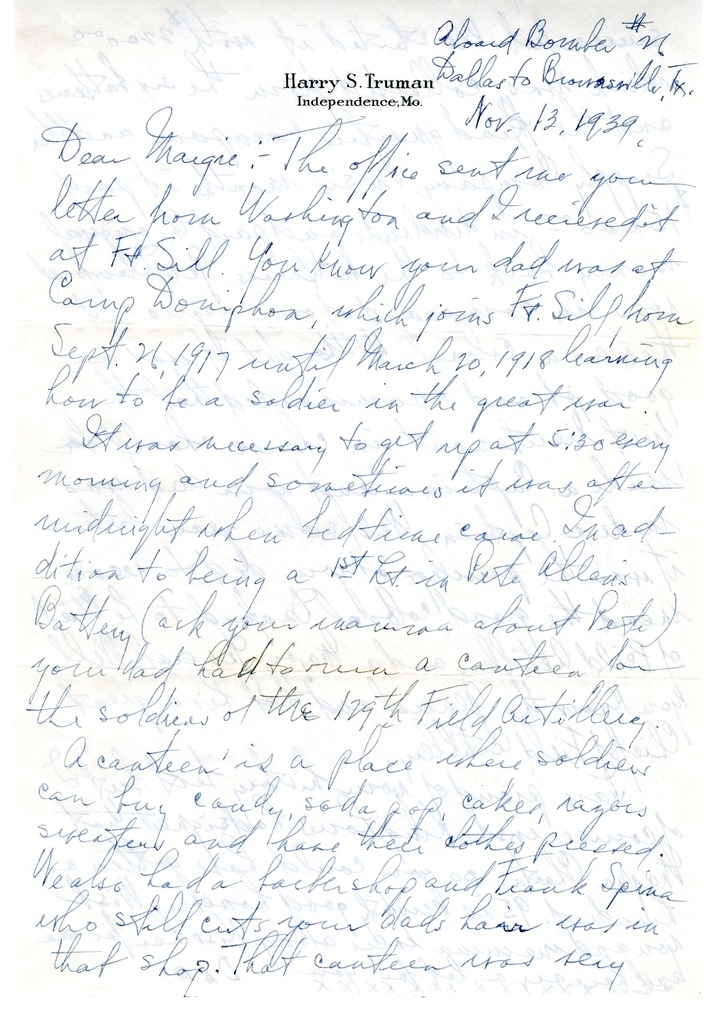 Aboard Bomber #26
Dallas to Brownsville, Tx.
Nov. 13, 1939.
Harry S. Truman
Independence, Mo.
Dear Margie:- The office sent me your
letter from Washington and I recieved it
at Ft. Sill. You know your dad was at
Camp Doniphan, which joins Ft. Sill, from
Sept. 26, 1917 until March 20, 1918 learning
how to be a soldier in the great war.
It was necessary to get up at 5:30 every
morning and sometimes it was after
midnight when bedtime came. In ad-
dition to being a 1st Lt. in Pete Allen's
Battery (ask your mamma about Pete)
your dad had to run a canteen for
the soldiers of the 129th Field Artillery.
A canteen is a place where soldiers
can buy candy, soda pop, cakes, razors
sweaters and have their clothes pressed.
We also had a barber shop and Frank Spina
who still cuts your dads hair was in
that shop. That canteen was very